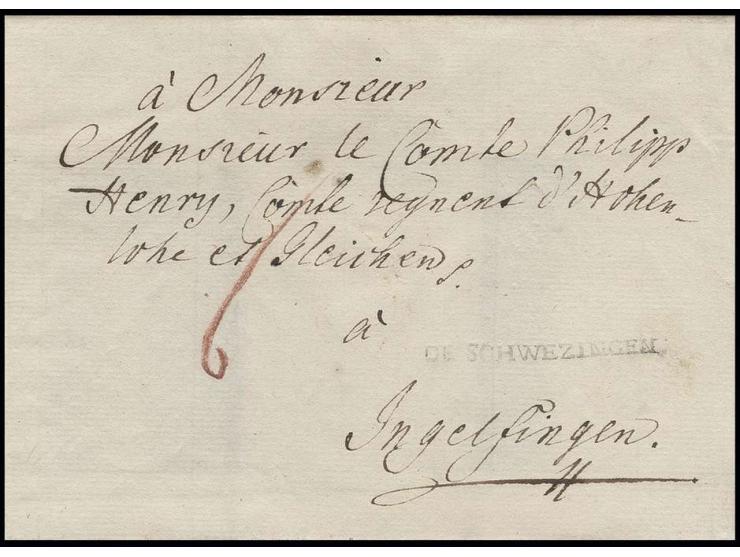 à Monsieur
Monsieur le Comte Philipp
Henry, Comte regnent d'Hohen-
lohe et Gleichen p.
à
DE SCHWEZINGEN.
Ingelfingen.
6